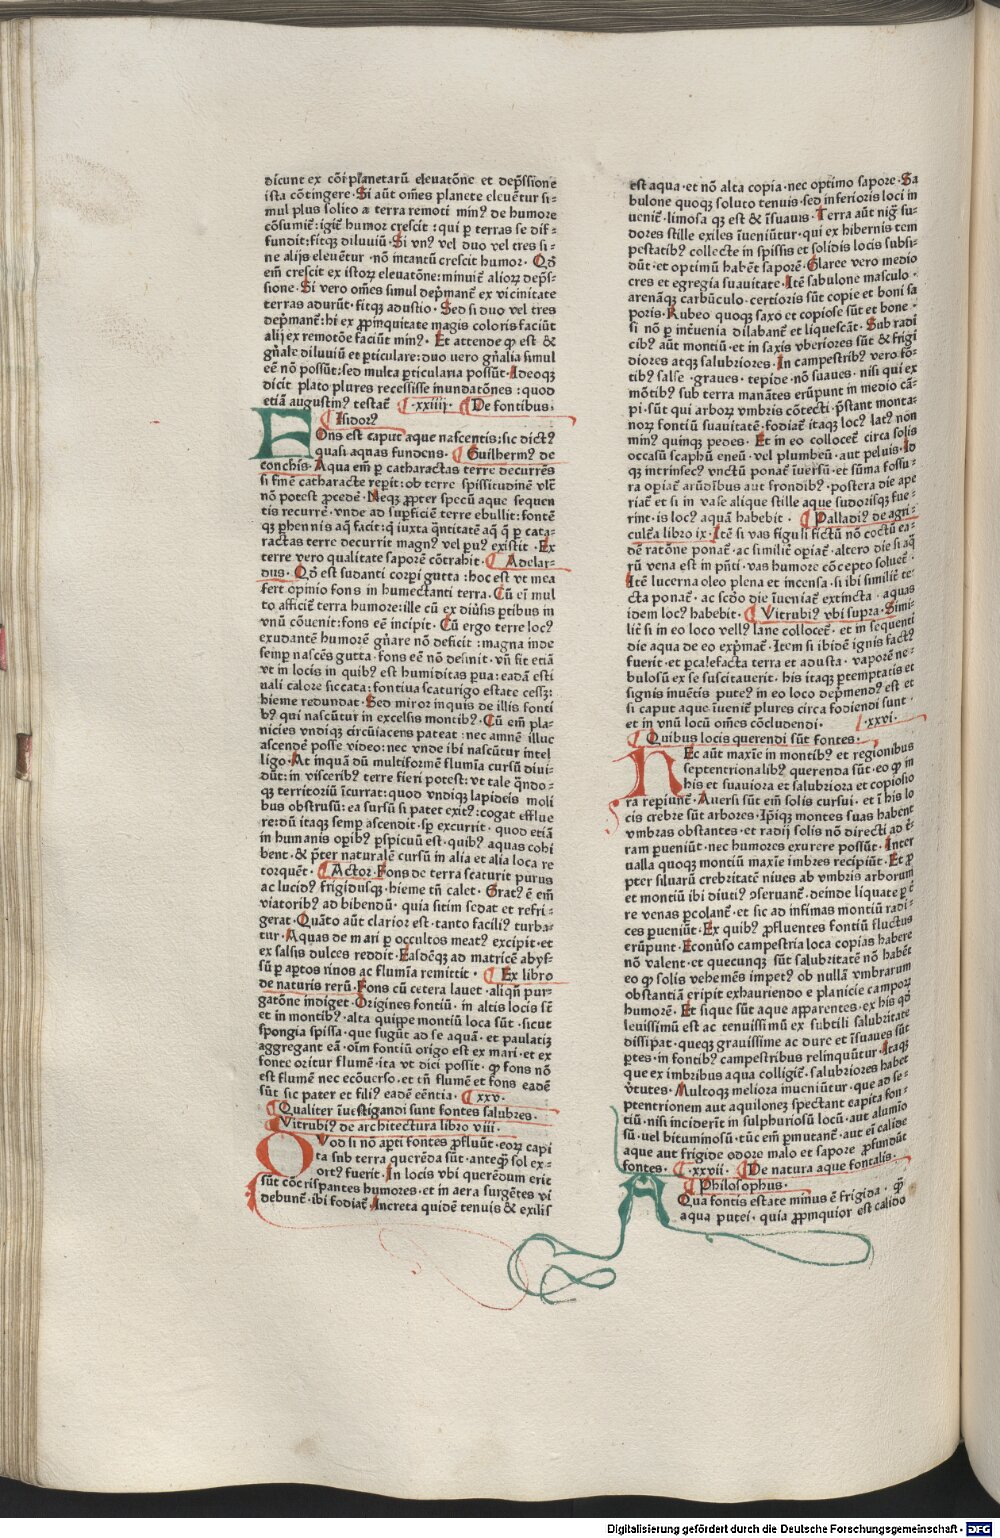 dicunt ex cōi planetarū eleuatōne et dep̄ssione
ista cōtingere · Si aūt om̄es planete eleuētur si⸗
mul plus solito a terra remoti minꝰ de humore
cōsumūt: igit̄ humor crescit : qui ꝑ terras se dif⸗
fundit: fitqꝫ diluuiū · Si vnꝰ vel duo vel tres si⸗
ne alijs eleuētur · nō intantū crescit humor · Qd̄
em̄ crescit ex istoꝝ eleuatōne: minuit̄ alioꝝ dep̄s⸗
sione · Si vero om̄es simul dep̄mant̄ ex vicinitate
terras adurūt · fitqꝫ adustio · Sed si duo vel tres
dep̄mant̄: hi ex ꝓpinquitate magis coloris faciūt
alij ex remotōe faciūt minꝰ · Et attende ꝙ est &
gn̄ale diluuiū et ꝑticulare: duo uero gn̄alia simul
eē nō possūt: sed multa ꝑticularia possūt · Ideoqꝫ
dicit plato plures recessisse inundatōnes : quod
etiā augustinꝰ testat̄ ¶ · xxiiii · ¶ De fontibus ·
¶ Isidorꝰ
FOns est caput aque nascentis: sic dictꝰ
quasi aquas fundens · ¶ Guilhermꝰ de
conchis · Aqua em̄ ꝑ catharactas terre decurrēs
si finē catharacte reꝑit: ob terre spissitudinē vlt̄
nō potest ꝓcedē · Neqꝫ ꝓpter specū aque sequen
tis recurrē · vnde ad suꝑficiē terre ebullit: fontē
qꝫ ꝑhennis aq̄ facit: q̄ iuxta q̄ntitatē aq̄ q̄ ꝑ cata⸗
ractas terre decurrit magnꝰ vel ꝑuꝰ existit · Ex
terre vero qualitate saporē cōtrahit · ¶ Adelar⸗
dus · Qd̄ est sudanti corꝑi gutta : hoc est vt mea
fert opinio fons in humectanti terra · Cū em̄ mul
to afficit̄ terra humore: ille cū ex diūsis ꝑtibus in
vnū cōuenit: fons eē incipit · Cū ergo terre locꝰ
exudantē humorē gn̄are nō deficit : magna inde
semꝑ nascēs gutta · fons eē nō desinit · vn̄ fit etiā
vt in locis in quibꝰ est humiditas ꝑua: eadā esti
uali calore siccata: fontiua scaturigo estate cessꝫ:
hieme redundat · Sed miror inquis de illis fonti
bꝰ qui nascūtur in excelsis montibꝰ · Cū em̄ pla⸗
nicies vndiqꝫ circūiacens pateat : nec amnē illuc
ascendē posse video: nec vnde ibi nascūtur intel
ligo · At inquā dū multiformē flumīa cursū diui⸗
dūt: in visceribꝰ terre fieri potest: vt tale q̄ndo⸗
qꝫ territoriū īcurrat: quod vndiqꝫ lapideis moli
bus obstrusū: ea sursū si patet exitꝰ: cogat efflue
re: dū itaqꝫ semꝑ ascendit · sꝑ excurrit · quod etiā
in humanis oꝑibꝰ ꝑspicuū est · quibꝰ aquas cohi
bent · & p̄ter naturalē cursū in alia et alia loca re
torquēt · ¶ Actor · Fons de terra scaturit purus
ac lucidꝰ frigidusqꝫ · hieme tn̄ calet · Gratꝰ ē em̄
viatoribꝰ ad bibendū · quia sitim sedat et refri⸗
gerat · Quāto aūt clarior est · tanto faciliꝰ turba⸗
tur · Aquas de mari ꝑ occultos meatꝰ excipit · et
ex salsis dulces reddit · Easdēqꝫ ad matricē abys⸗
sū ꝑ aꝑtos rinos ac flumīa remittit · ¶ Ex libro
de naturis rerū · Fons cū cetera lauet · aliqn̄ pur⸗
gatōne indiget · Origines fontiū · in altis locis st̄
et in montibꝰ · alta quippe montiū loca sūt · sicut
spongia spissa · que sugūt ad se aquā · et paulatiꝫ
aggregant eā · oīm fontiū origo est ex mari · et ex
fonte oritur flumē · ita vt dici possit · ꝙ fons nō
est flumē nec ecōuerso · et tn̄ flumē et fons eadē
sūt sic pater et filiꝰ eadē eēntia · ¶ xxv ·
¶ Qualiter īuestigandi sunt fontes salubres ·
¶ Vitrubiꝰ de architectura libro viii ·
QVod si nō aꝑti fontes ꝓfluūt · eoꝝ capi
ta snb terra querēda sūt · anteqꝫ sol ex⸗
ortꝰ fuerit · In locis vbi querēdum erit
sūt cōcrispantes humores · et in aera surgētes vi
debunt̄ · ibi fodiat̄ · Increta quidē tenuis & exilis
est aqua · et nō alta copia · nec optimo sapore · Sa
bulone quoqꝫ soluto tenuis · sed inferioris loci in
uenit̄ · limosa qꝫ est & īsuauis · Terra aūt nigᷓ su⸗
dores stille exiles īueniūtur · qui ex hibernis tem
pestatibꝰ collecte in spissis et solidis locis subsi⸗
dūt · et optimū habēt saporē · Glaree vero medio
cres et egregia suauitate · Itē sabulone masculo ·
arenaqꝫ carbūculo · certioris sūt copie et boni sa
poris · Rubeo quoqꝫ saxo et copiose sūt et bone ·
si nō ꝑ inteuenia dilabant̄ et liquescāt · Sub radi
cibꝰ aūt montiū · et in saxis vberiores sūt & frigi
diores atqꝫ salubriores · In campestribꝰ vero fō⸗
tibꝰ salse · graues · tepide · nō suaues · nisi qui ex
mōtibꝰ sub terra manātes erūpunt in medio cā⸗
pi · sūt qui arboꝝ vmbris cōtecti · p̄stant monta⸗
noꝝ fontiū suauitatē · fodiat̄ itaqꝫ locꝰ latꝰ non
minꝰ quinqꝫ pedes · Et in eo collocet̄ circa solis
occasū scaphū eneū · vel plumbeū · aut peluis · Id
qꝫ intrinsecꝰ vnctū ponat̄ īuersū · et sūma fossu⸗
ra oꝑiat̄ arūdībus aut frondibꝰ · postera die aꝑe
riat̄ et si in vase alique stille aque sudorisqꝫ fue⸗
rint · is locꝰ aquā habebit · ¶ Palladiꝰ de agri⸗
cult̄a libro ix · Itē si vas figuli fictū nō coctū ea⸗
dē ratōne ponat̄ · ac similit̄ oꝑiat̄ · altero die si aq̄
rū vena est in pn̄ti · vas humore cōcepto soluet̄ ·
Itē lucerna oleo plena et incensa · si ibi similit̄ te⸗
cta ponat̄ · ac scd̄o die īueniat̄ extincta · aquas
idem locꝰ habebit · ¶ Vitrubiꝰ vbi supra · Simi⸗
lit̄ si in eo loco vellꝰ lane collocet̄ · et in sequenti
die aqua de eo exp̄mat̄ · Item si ibidē ignis factꝰ
fuerit · et ꝑcalefacta terra et adusta · vaporē ne⸗
bulosū ex se suscitauerit · his itaqꝫ ꝑtemptatis et
signis inuētis puteꝰ in eo loco dep̄mendꝰ est et
si caput aque īuenit̄ plures circa fodiendi sunt ·
et in vnū locū om̄es cōcludendi · ¶ · xxvi ·
¶ Quibus locis querendi sūt fontes ·
HEc aūt maxīe in montibꝰ et regionibus
septentrionalibꝰ querenda sūt · eo ꝙ in
his et suauiora et salubriora et copiosio
ra reꝑiunt̄ · Auersi sūt em̄ solis cursui · et ī his lo
cis crebre sūt arbores · Ip̄iqꝫ montes suas habent
vmbras obstantes · et radij solis nō directi ad t̄⸗
ram ꝑueniūt · nec humores exurere possūt · Inter
ualla quoqꝫ montiū maxīe imbres recipiūt · Et ꝓ
pter siluarū crebritatē niues ab vmbris arborum
et montiū ibi diutiꝰ ꝯseruant̄ · deinde liquate ꝑ t̄
re venas ꝑcolant̄ · et sic ad infimas montiū radi⸗
ces ꝑueniūt · Ex quibꝰ ꝓfluentes fontiū fluctus
erūpunt · Econūso campestria loca copias habere
nō valent · et quecunqꝫ sūt salubritatē nō habēt
eo ꝙ solis vehemēs impetꝰ ob nullā vmbrarum
obstantiā eripit exhauriendo e planicie campoꝝ
humorē · Et sique sūt aque apparentes · ex his qd̄
leuissimū est ac tenuissimū ex subtili salubritate
dissipat · queqꝫ grauissime ac dure et īsuaues sūt
ꝑtes · in fontibꝰ campestribus relinquūtur · Itaqꝫ
que ex imbribus aqua colligit̄ · salubriores habet
v̄tutes · Multoqꝫ meliora inueniūtur · que ad se⸗
ptentrionem aut aquilonem spectant capita fon⸗
tiū · nisi inciderīt in sulphuriosū locū · aut alumio
sū · vel bituminosū · tūc em̄ ꝑmutant̄ · aut em̄ calide
aque aut frigide odore malo et sapore ꝓfundūt
fontes · ¶ · xxvii · ¶ De natura aque fontalis ·
¶ Philosophus ·
AQua fontis estate minus ē frigida · ꝙ̄
aqua putei · quia ꝓpinquior est calido
Digitalisierung gefördert durch die Deutsche Forschungsgemeinschaft · DFG